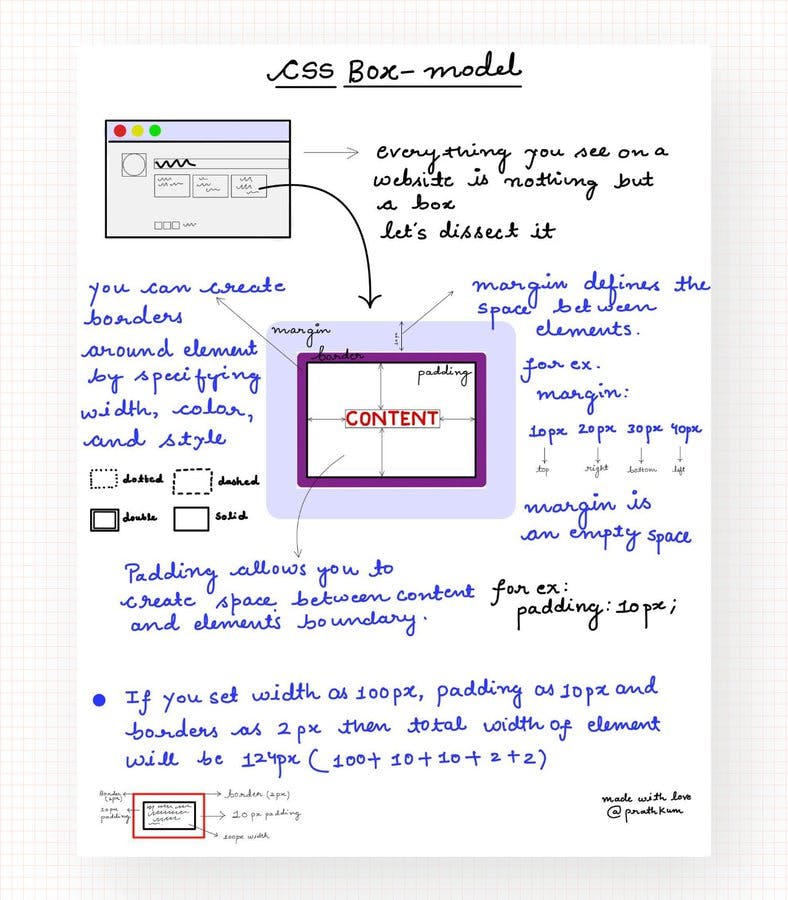 CSS Box-model
everything you see on a
website is nothing but
a box
let's dissect it
you can create
borders
around element
by specifying
width, color,
and style
dotted
dashed
double
solid
margin
border
padding
CONTENT
margin defines the
space between
elements.
for ex.
margin:
10px 20px 30px 40px
top right bottom left
margin is
an empty space
Padding allows you to
create space between content
and element's boundary.
for ex:
padding: 10px;
If you set width as 100px, padding as 10px and
borders as 2px then total width of element
will be 124px (100+10+10+2+2)
Border
(2px)
10px
padding
border (2px)
10px padding
100px width
made with love
@prathkum